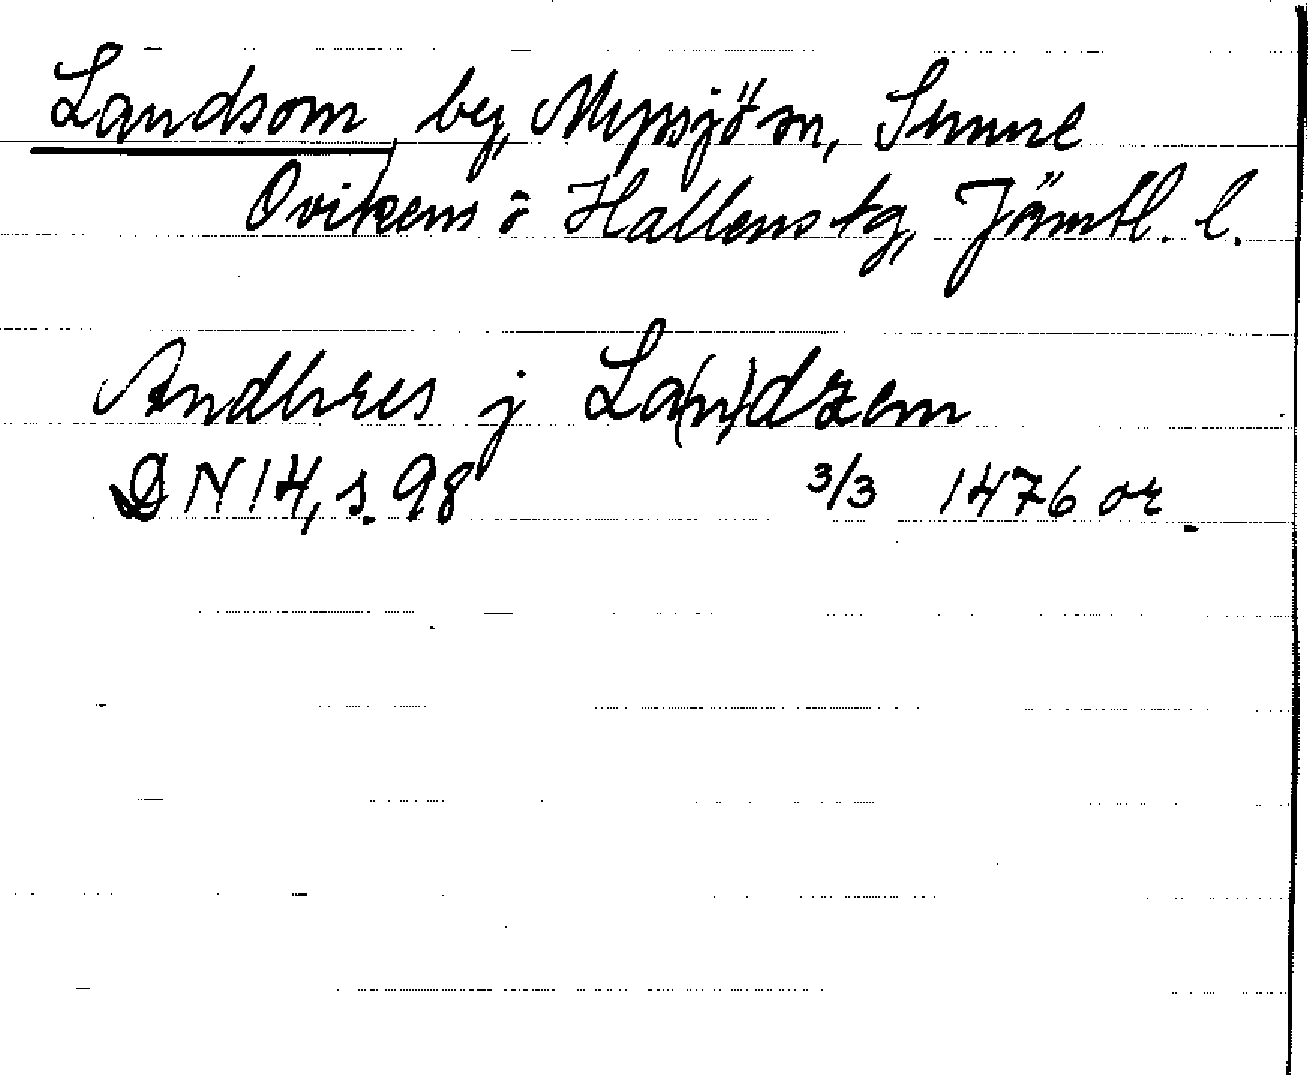 Landsom, by, Myssjö sn, Sunne
Ovikens o Hallens tg, Jämtl. l.
Andhres j La(n)dzem
DN 14, s. 98 3/3 1476 or.